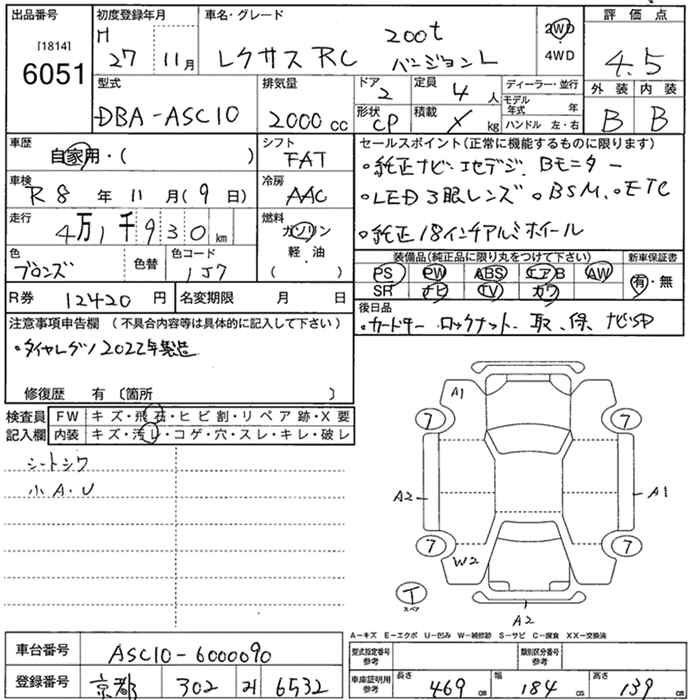 出品番号 初度登録年月 車名・グレード 評価点
[1814] H 200t 2WD
6051 27 11月 レクサス RC バージョンL 4WD 4.5
型式 排気量 ドア 定員 ディーラー・並行 外装 内装
2 4人 モデル年式 年
DBA-ASC10 2000cc 形状 積載 B B
CP × kg ハンドル 左・右
車歴 シフト セールスポイント(正常に機能するものに限ります)
自家用・( ) FAT ・純正ナビ・1セデジ、Bモニター
車検 冷房
R8年 11月(9日) AAC ・LED3眼レンズ ・BSM、・ETC
走行 燃料
4万1千930km ガソリン ・純正18インチアルミホイール
色 色替 色コード 軽・油 装備品(純正品に限り丸をつけて下さい) 新車保証書
ブロンズ 1J7 ( ) PS PW ABS エアB AW 有・無
SR ナビ TV カワ
R券 12420円 名変期限 月 日 後日品
注意事項申告欄 (不具合内容等は具体的に記入して下さい) ・カードキー ロックナット、取、保、ナビSD
・タイヤレグノ2022年製造
修復歴 有 〔箇所 〕
検査員 FW キズ・飛石・ヒビ割・リペア跡・X要
記入欄 内装 キズ・汚レ・コゲ・穴・スレ・キレ・破レ
シートシワ
小A・U
A1
7 7
A2 A1
7 7
W2
T
スペア
A2
A-キズ E-エクボ U-凹み W-補修跡 S-サビ C-腐食 XX-交換済
車台番号 ASC10-6000090 型式指定番号 参考 類別区分番号 参考
登録番号 京都 302 み 6532 車庫証明用 参考 長さ 469cm 幅 184cm 高さ 139cm